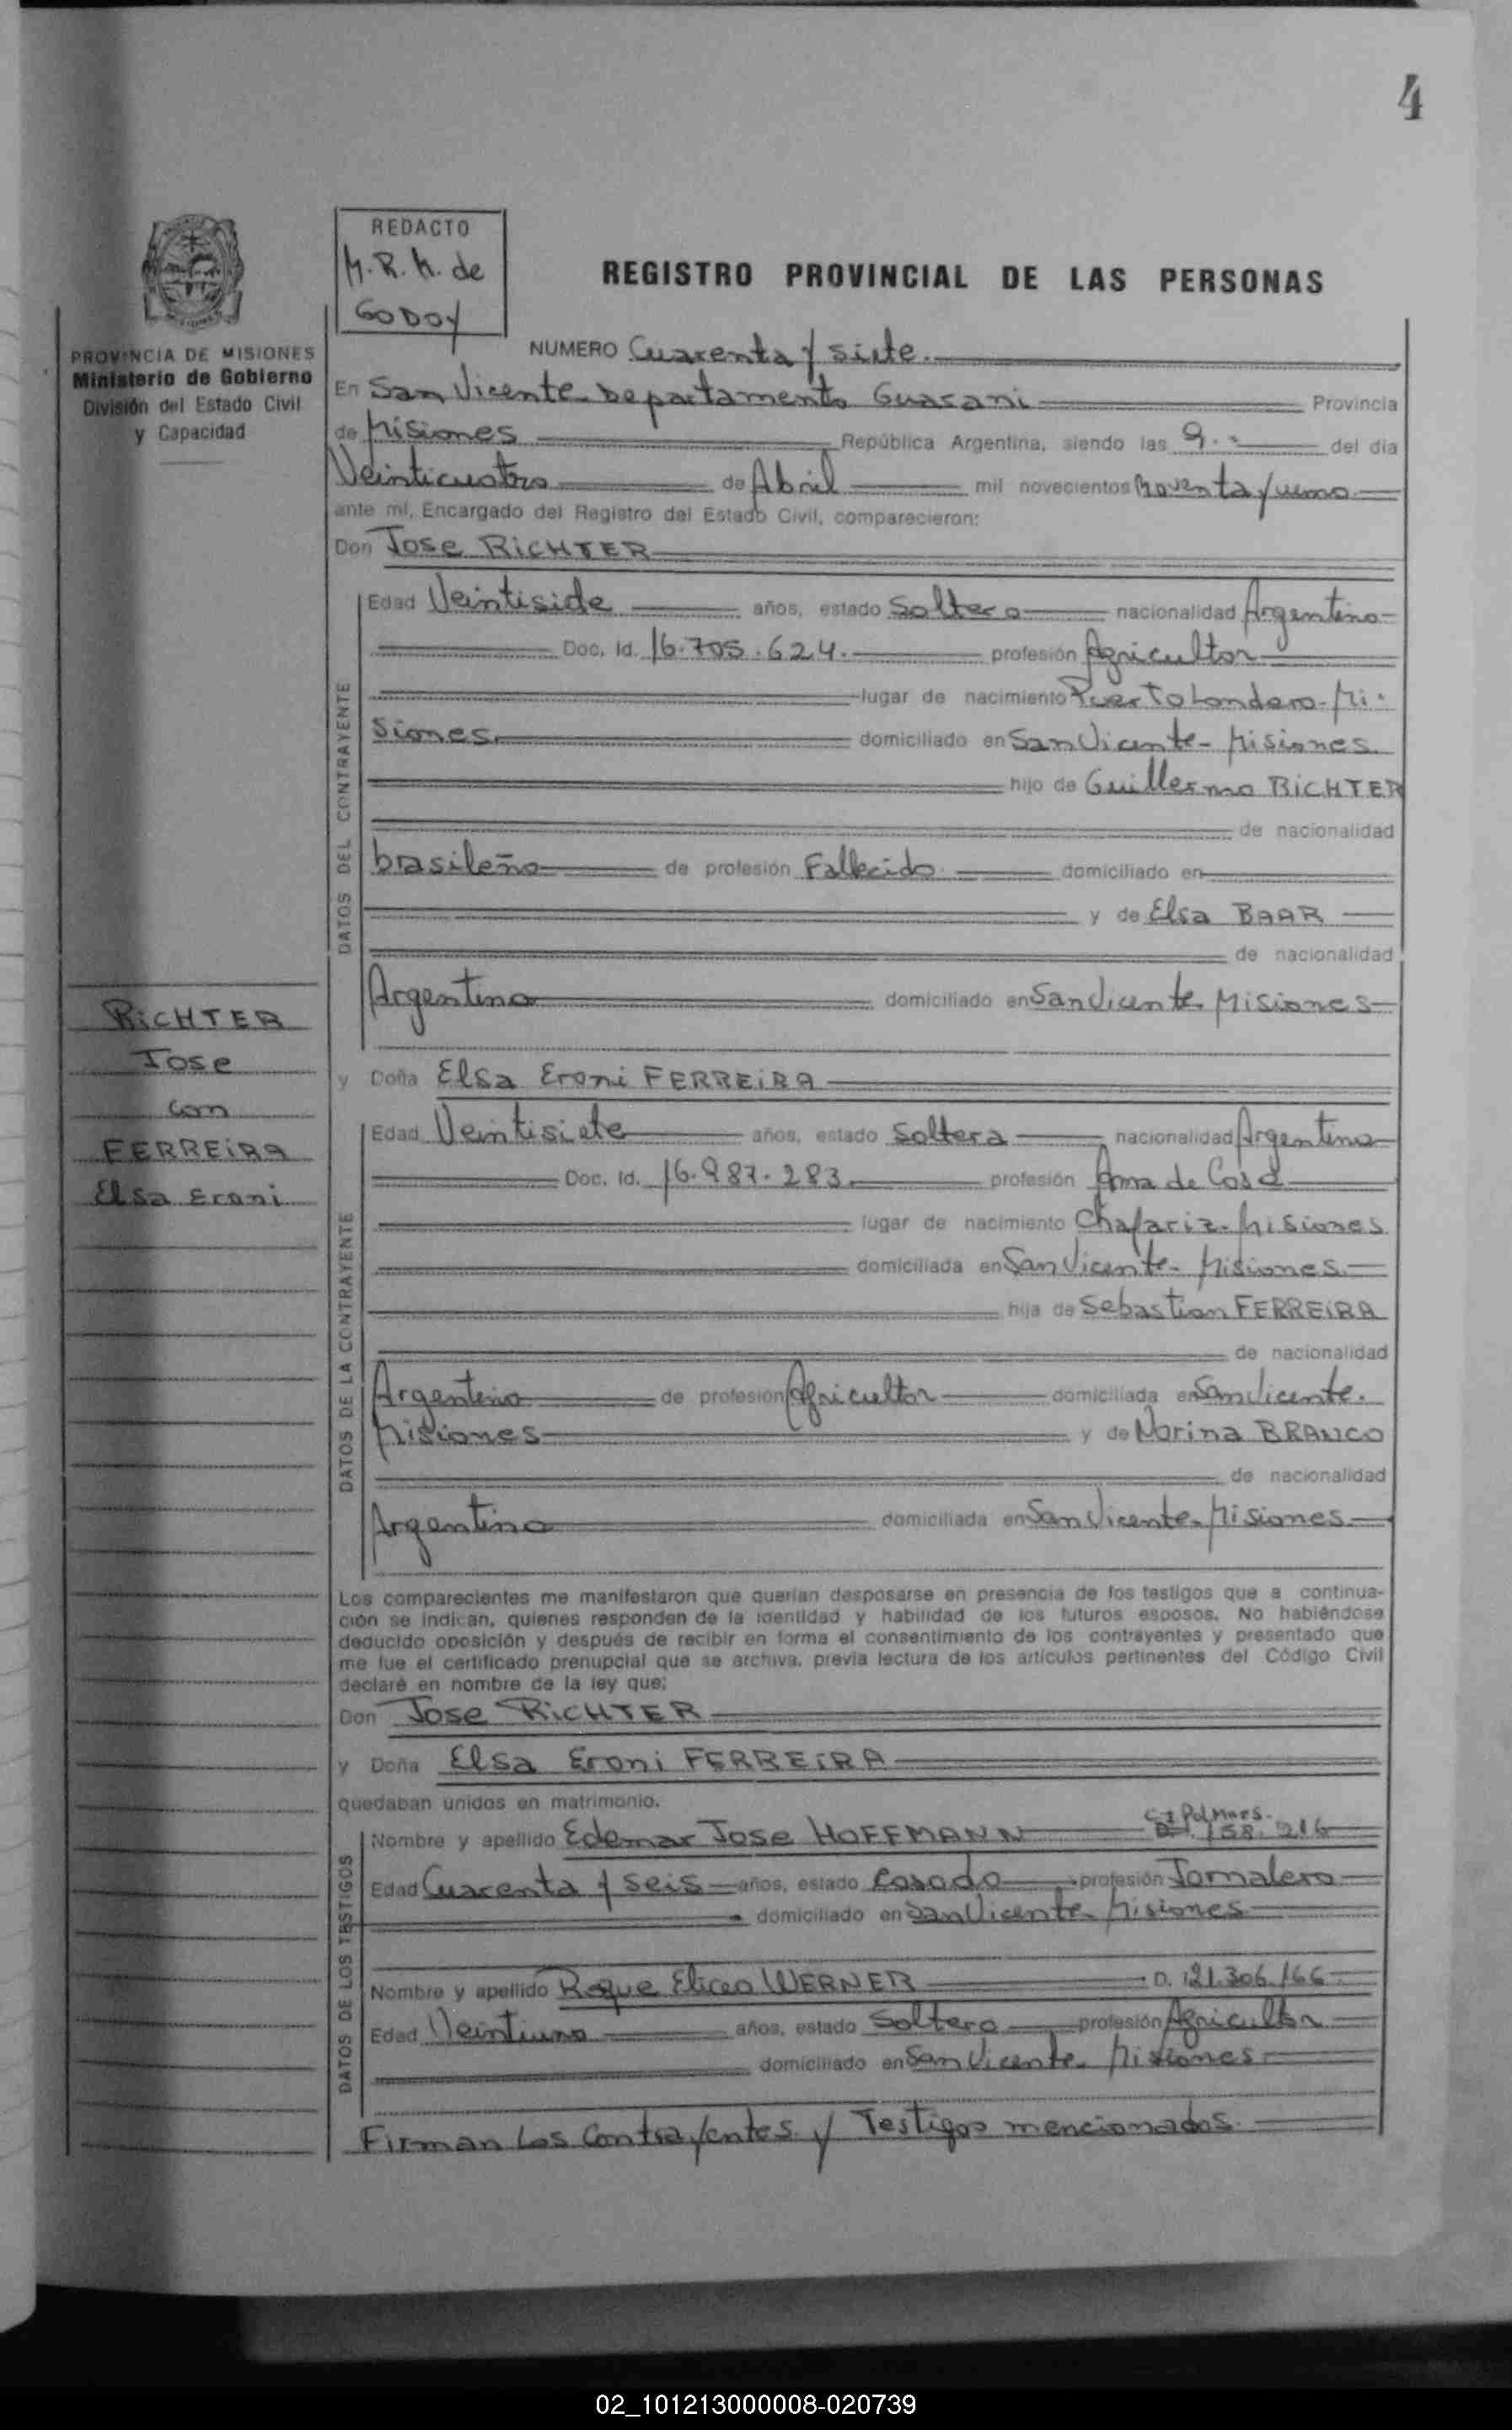 4
REDACTO
M.R.K. de
GODOY
REGISTRO PROVINCIAL DE LAS PERSONAS
PROVINCIA DE MISIONES
Ministerio de Gobierno
División del Estado Civil
y Capacidad
NUMERO Cuarenta y siete.
En San Vicente Departamento Guarani Provincia
de Misiones República Argentina, siendo las 9.- del dia
Veinticuatro de Abril mil novecientos noventa y uno
ante mí, Encargado del Registro del Estado Civil, comparecieron:
Don Jose RiCHTER
DATOS DEL CONTRAYENTE
Edad Veintisiete años, estado Soltero nacionalidad Argentino
Doc. Id. 16.705.624. profesión Agricultor
lugar de nacimiento Puerto Londero-Mi-
siones domiciliado en San Vicente- Misiones
hijo de Guillermo RiCHTER
de nacionalidad
brasileño de profesión Fallecido domiciliado en
y de Elsa BAAR
de nacionalidad
Argentina domiciliado en San Vicente Misiones
RiCHTER
Jose
con
FERREiRA
Elsa Eroni
y Doña Elsa Eroni FERREiRA
DATOS DE LA CONTRAYENTE
Edad Veintisiete años, estado Soltera nacionalidad Argentina
Doc. Id. 16.987.283. profesión Ama de Casa
lugar de nacimiento Chafariz-Misiones
domiciliada en San Vicente- Misiones
hija de Sebastian FERREiRA
de nacionalidad
Argentino de profesión Agricultor domiciliada en San Vicente.
Misiones y de Marina BRANCO
de nacionalidad
Argentina domiciliada en San Vicente-Misiones
Los comparecientes me manifestaron que querían desposarse en presencia de los testigos que a continua-
ción se indican, quienes responden de la identidad y habilidad de los futuros esposos. No habiéndose
deducido oposición y después de recibir en forma el consentimiento de los contrayentes y presentado que
me fue el certificado prenupcial que se archiva, previa lectura de los artículos pertinentes del Código Civil
declaré en nombre de la ley que:
Don Jose RiCHTER
y Doña Elsa Eroni FERREiRA
quedaban unidos en matrimonio.
DATOS DE LOS TESTIGOS
Nombre y apellido Edemar Jose HOFFMANN C.I. Pol Mnes. 158.216
Edad Cuarenta y seis años, estado Casado profesión Jornalero
domiciliado en San Vicente Misiones
Nombre y apellido Roque Eliceo WERNER D. I 21.306.166
Edad Veintiuno años, estado Soltero profesión Agricultor
domiciliado en San Vicente Misiones
Firman Los Contrayentes y Testigos mencionados.
02_101213000008-020739